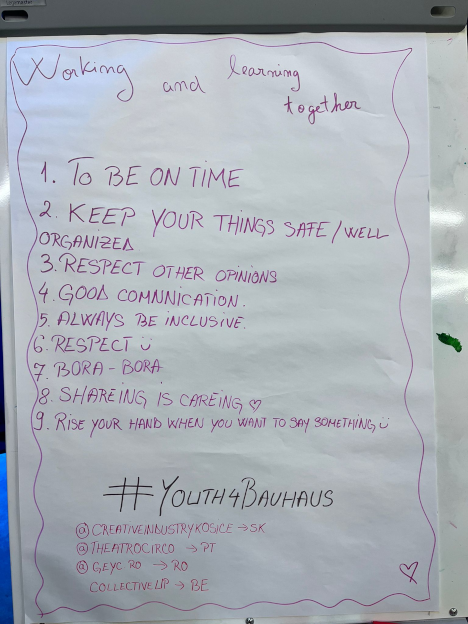 Working and learning
together
1. To BE ON TIME
2. KEEP YOUR THINGS SAFE/WELL
ORGANIZED
3. RESPECT OTHER OPINIONS
4. GOOD COMNNICATION.
5. ALWAYS BE INCLUSIVE.
6. RESPECT Ü
7. BORA - BORA
8. SHAREING IS CAREING ♡
9. RISE YOUR HAND WHEN YOU WANT TO SAY SOMETHING Ü
#YOUTH4BAUHAUS
@CREATIVEINDUSTRYKOSICE → SK
@THEATROCIRCO → PT
@GEYC RO → RO
COLLECTIVEUP → BE